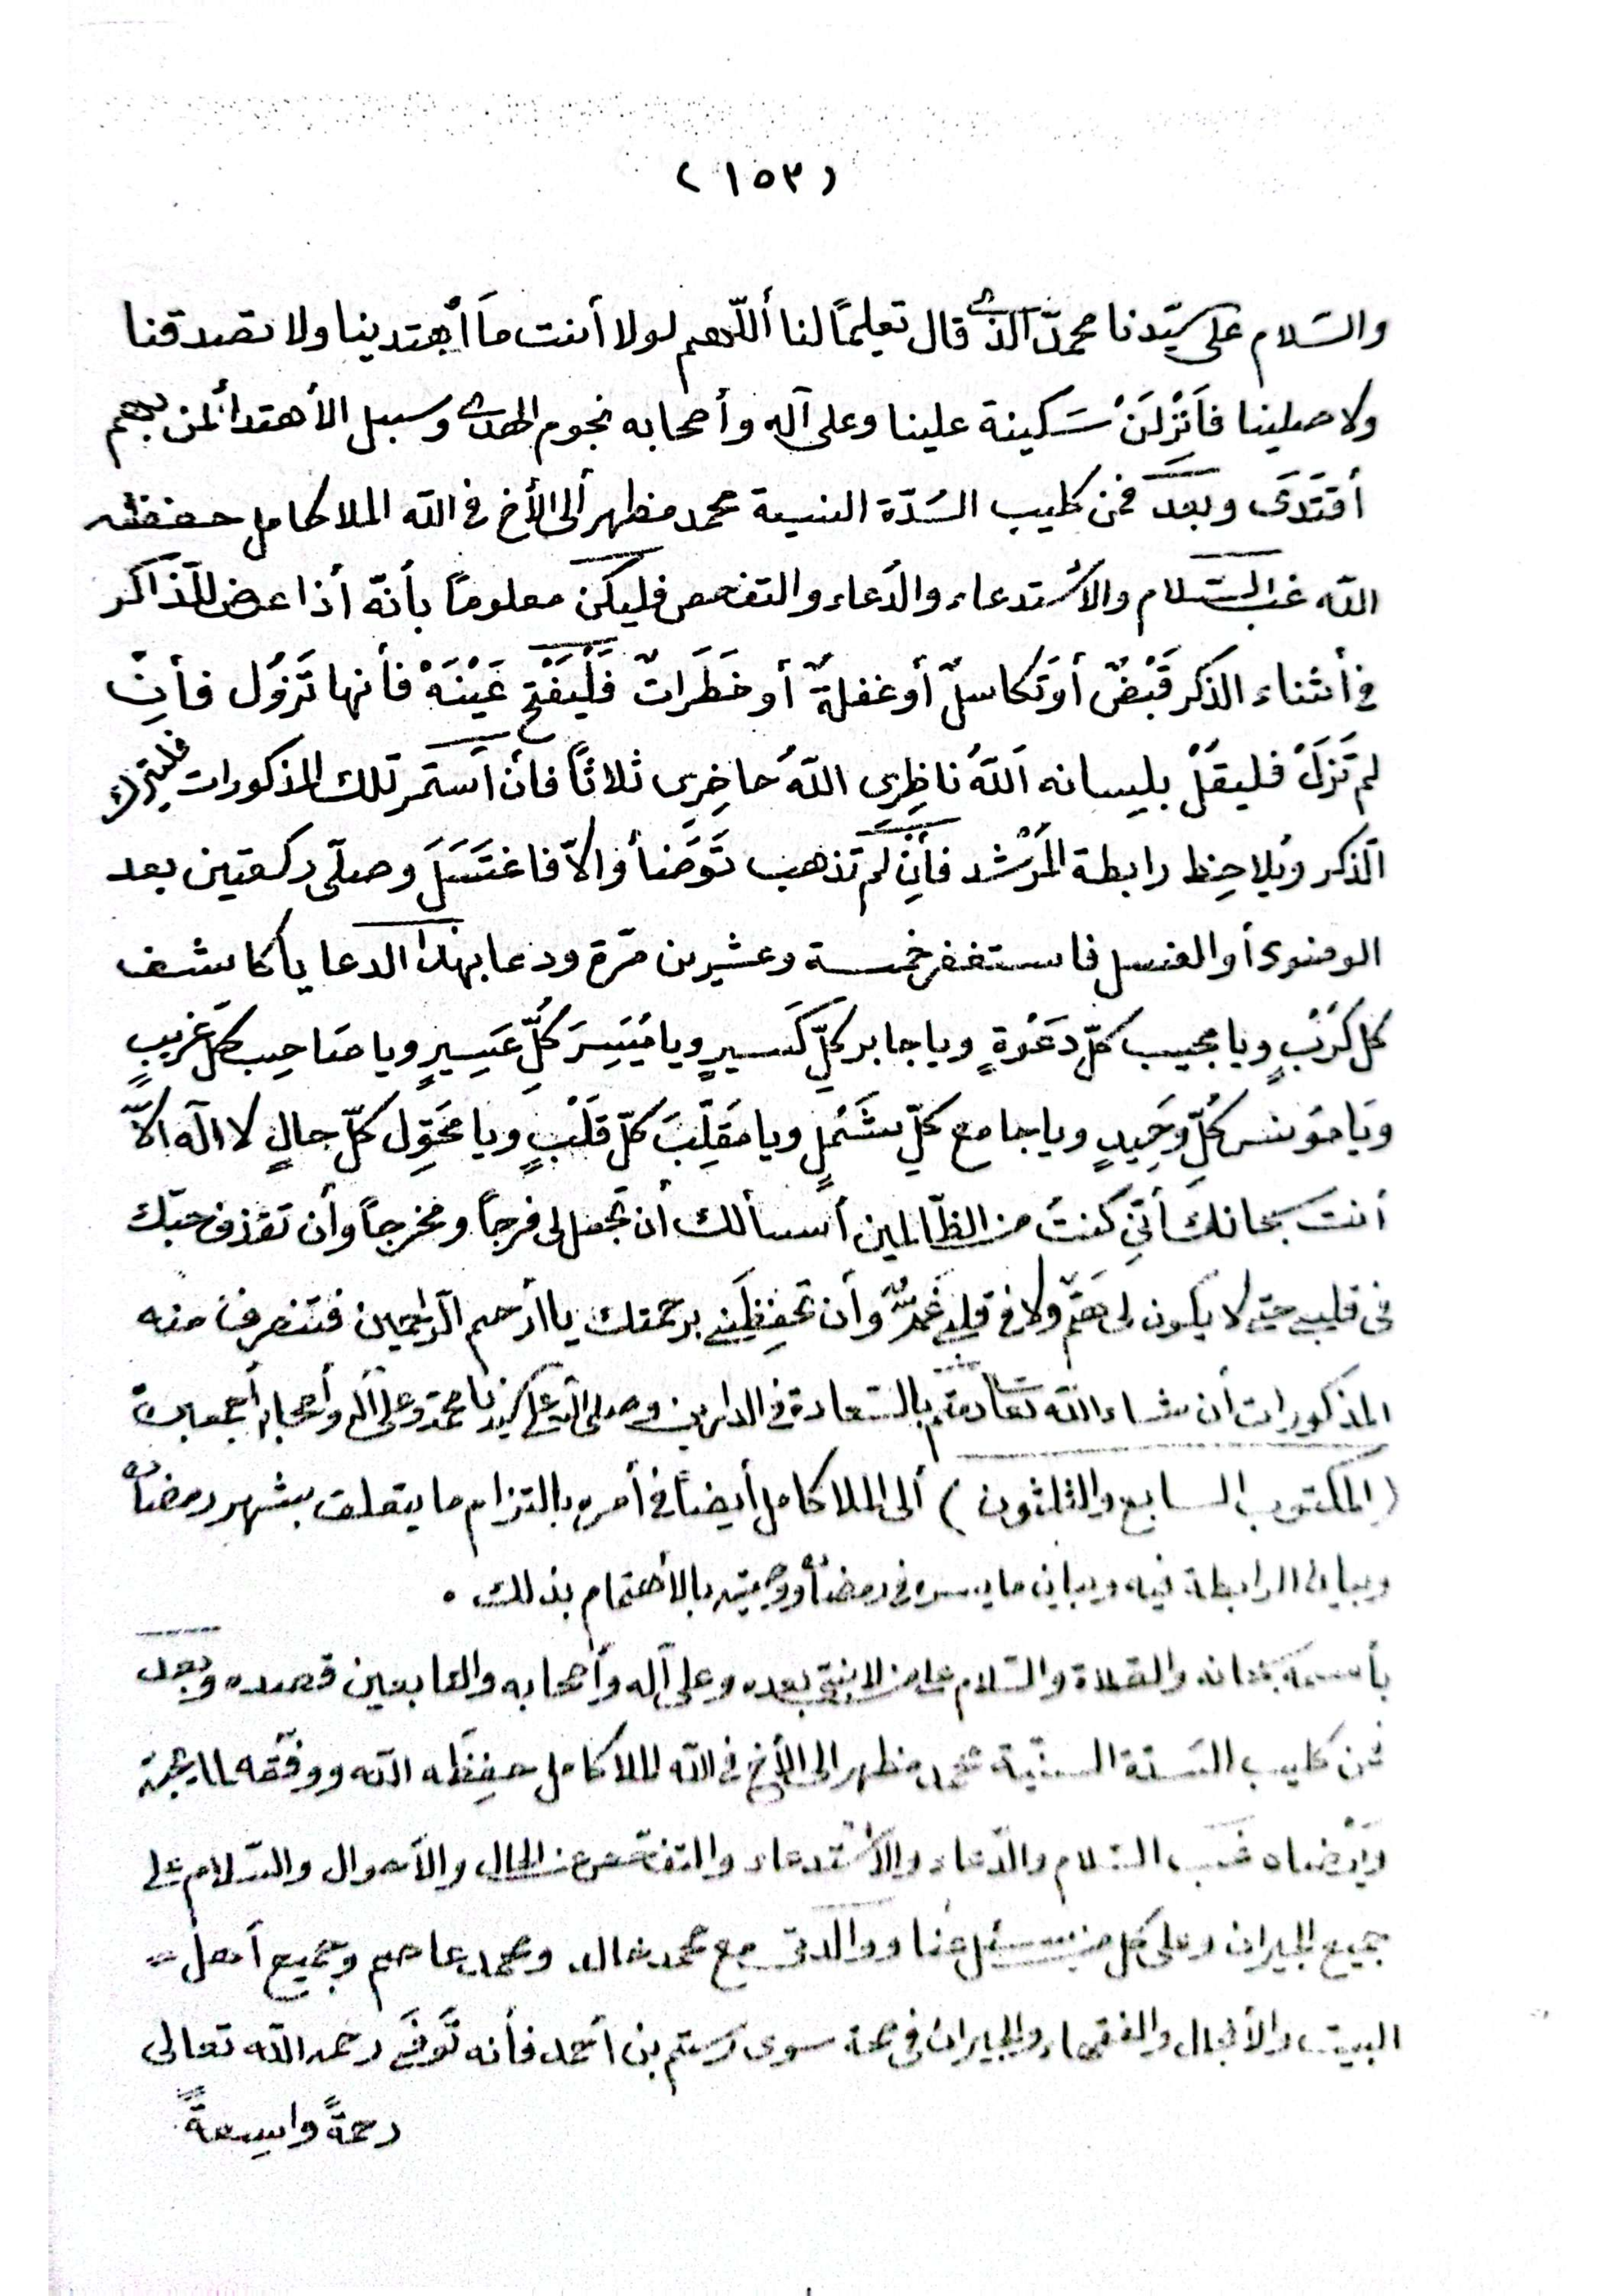 (١٥٣)
والسّلام على سيّدنا محمدّ الذى قال تعليمًا لنا أللّهم لولا أنت مَا أهتدينا ولا تصدقنا
ولا صلينا فَأنْزِلَنْ سَكينة علينا وعلى آله وأصحابه نجوم الهدى وسبيل الأهتداء لمن بهم
أقتَدَى وبَعدَ فمن كليب السُدّة السنية محمد مظهر ألى الأخ فى الله الملا كامل حفظه
الله غبّ السّلام والأستدعاء والدّعاء والتفحص فليكن معلومًا بأنّه أذا عرض للذّاكر
فى أثناء الذكر قَبْضٌ أو تَكاسلٌ أو غفلةٌ أو خَطَرَاتٌ فَلْيَفْتح عَيْنَهْ فأنها تَزوُل فأنِ
لم تَزَلْ فليقلْ بلِسانه اَللهُ ناظِرِى اللهُ حاضِرِى ثلاثاً فأن اَستمر تلك المذكورات فليترك
الّذكر ويُلاحِظ رابطة المُرْشد فأنِ لم تذهب تَوَضأ والاّ فاغتَسَلَ وصلّى ركعتين بعد
الوضوء أو الغسل فاستغفر خمسة وعشرين مّرة ودعا بهذا الدعا يا كاشف
كل كَرْبٍ ويا مجيب كلّ دَعْوةٍ ويا جابر كلِّ كَسيرٍ ويا مُيَسِرَ كُلِّ عَسِيرٍ ويا صَاحِب كل غَريبٍ
ويَا مؤنس كُلِّ وَحِيدٍ ويا جامع كلِّ شَمْلٍ ويا مقَلِّبَ كلّ قَلْبٍ ويا محَوِّل كلّ حالٍ لا اله الاّ
أنت سبحانكَ أنّى كنتُ من الظّالمين أسألك أن تجعل لى فرجاً ومخرجاً وأن تقذف حبّك
فى قلبى حتى لا يكون لى هَمّ ولا فى قلبى غَمٌّ وأن تحفِظَنى برحمتك يا أرحم الّراحمين فتنصرف منه
المذكورات أن شاء الله تعالى دمتم بالسّعادة فى الدارين وصلى الله على سيدنا محمد وعلى آله وأصحابه أجمعين
(المكتوب السابع والثلثون) ألى الملا كامل أيضاً فى أمره بالتزام ما يتعلق بشهر رمضان
وبيان الرابطة فيه وبيان ما يسره فى رمضان ووصيته بالأهتمام بذلك .
بأسمه سبحانه والصّلاة والسّلام على من لا نبىّ بعده وعلى آله وأصحابه والتابعين قصده وبعد
فمن كليب السّدة السنيّة محمد مظهر الى الأخ فى الله الملا كامل حفِظَه الله ووفّقه لما يحبّه
ويَرْضاه غبّ السّلام والدّعاء والأستدعاء والتفحّص عن الحال والأحوال والسّلام على
جميع الجيران وعلى كل من يسئل عنّا ووالدتى مع محمد خالد ومحمد عاصم وجميع أهل
البيت والأنجال والفقهاء والجيران فى صحة سوى رستم بن أحمد فأنه تَوفّى رحمه الله تعالى
رحمةً واسِعةً